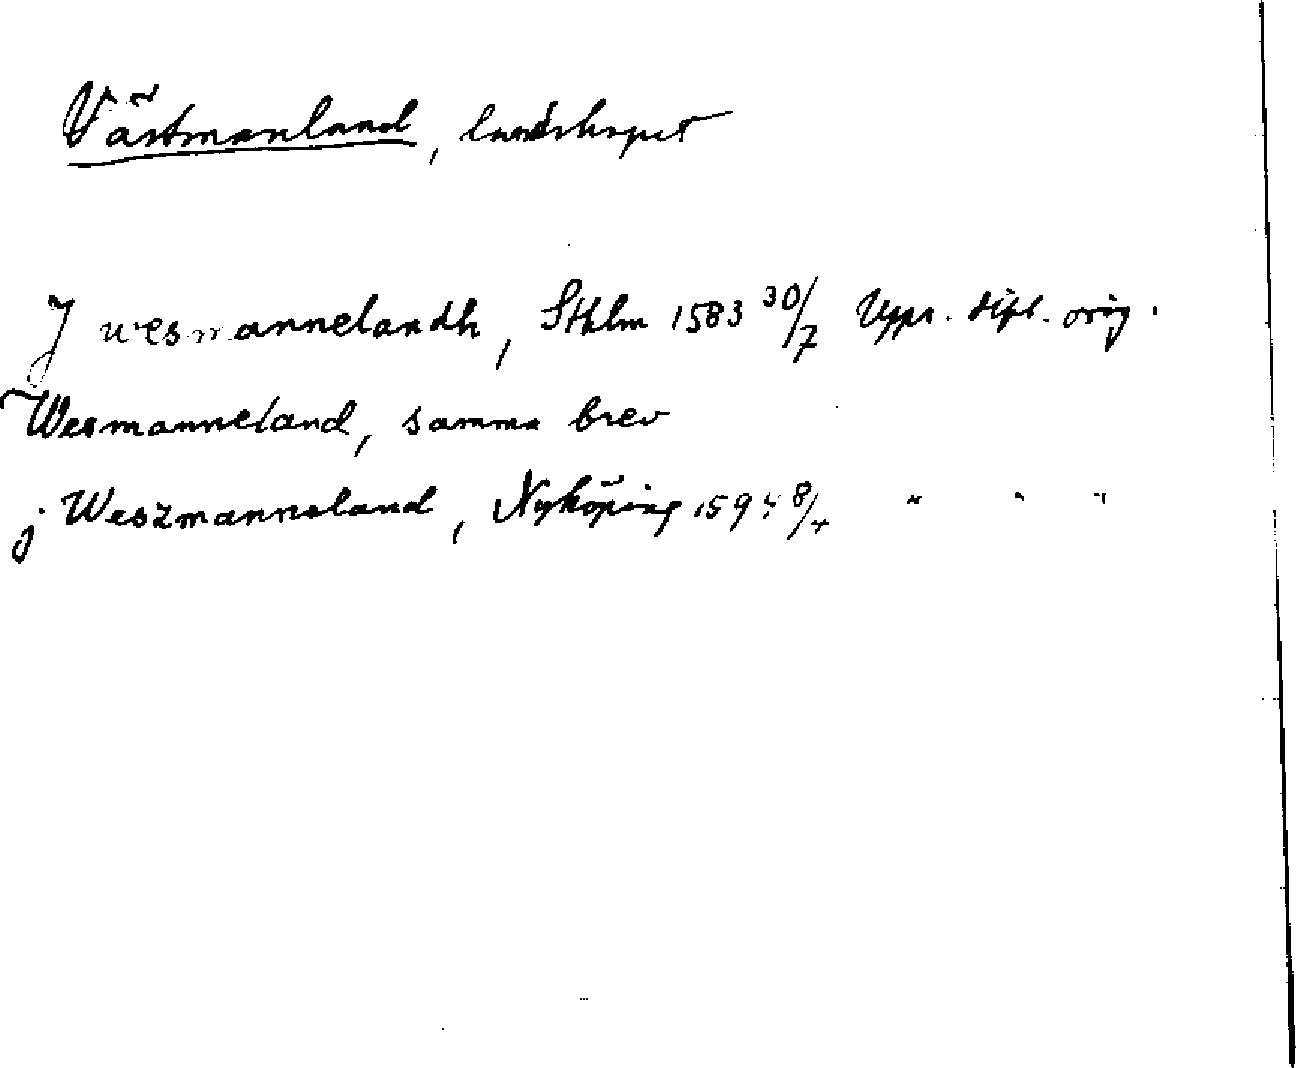 Västmanland, landskapet
J wesmannelandh, Sthlm 1583 30/7 Upps. dipl. orig.
Wesmanneland, samma brev
j Weszmanneland, Nyköping 8/4 " " "